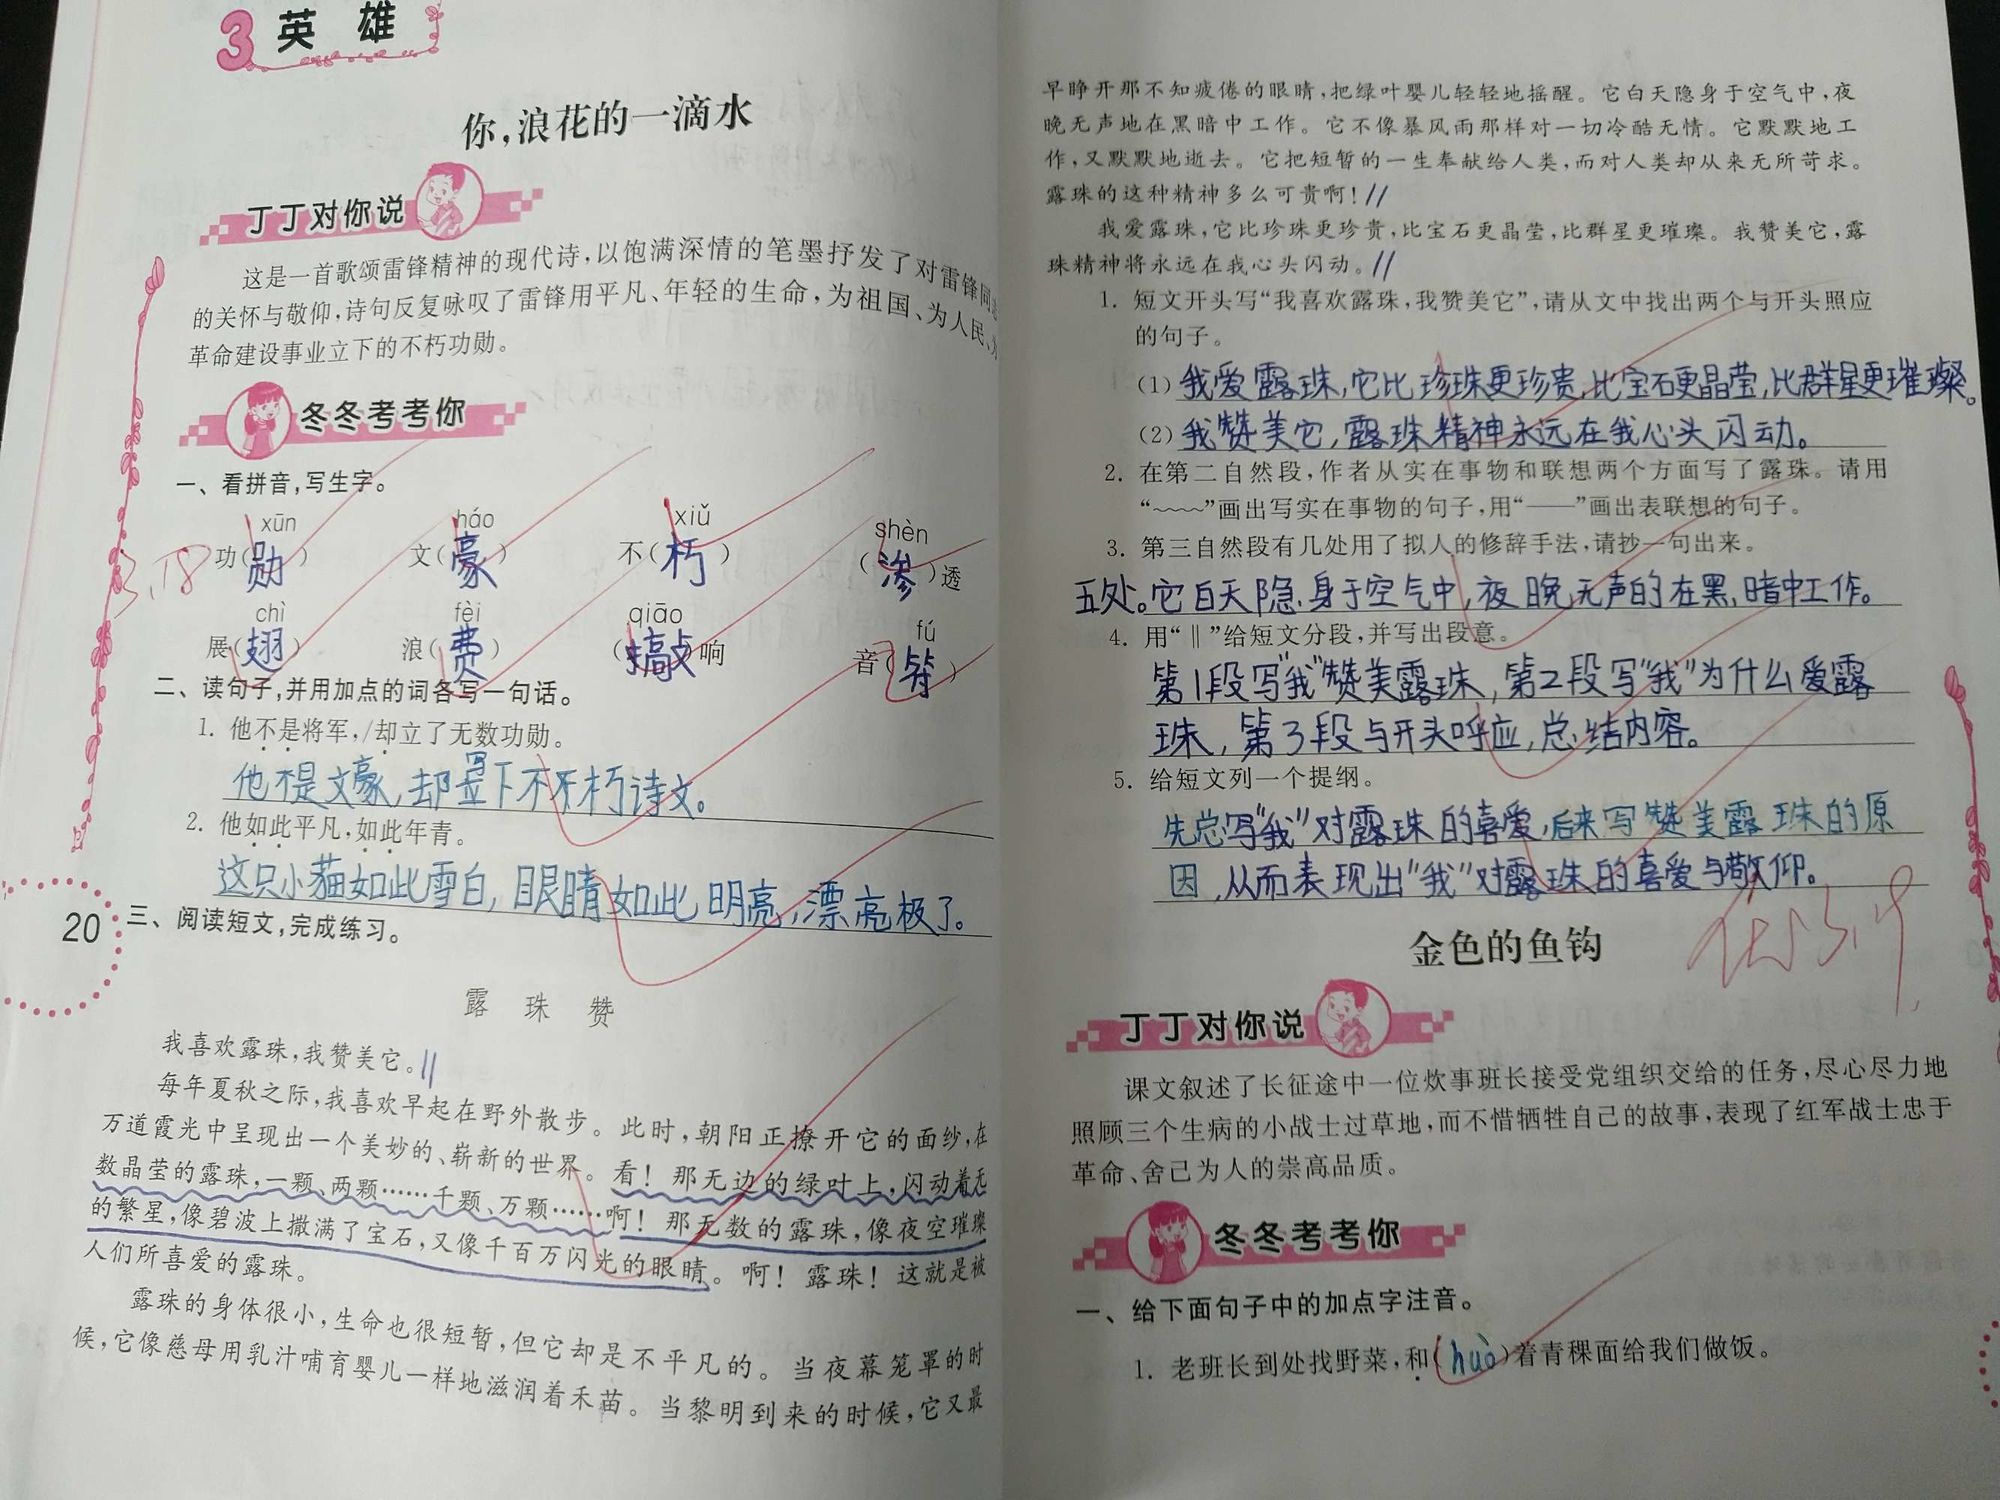 3 英雄
你,浪花的一滴水
丁丁对你说
这是一首歌颂雷锋精神的现代诗,以饱满深情的笔墨抒发了对雷锋同志
的关怀与敬仰,诗句反复咏叹了雷锋用平凡、年轻的生命,为祖国、为人民、为
革命建设事业立下的不朽功勋。
冬冬考考你
一、看拼音,写生字。
xūn háo xiǔ shèn
功(勋) 文(豪) 不(朽) (渗)透
3.18
chì fèi qiāo fú
展(翅) 浪(费) (敲)响 音(符)
二、读句子,并用加点的词各写一句话。
1. 他不是将军,/却立了无数功勋。
他不是文豪,却写下不朽诗文。
2. 他如此平凡,如此年青。
这只小猫如此雪白,眼睛如此明亮,漂亮极了。
20
三、阅读短文,完成练习。
露珠赞
我喜欢露珠,我赞美它。//
每年夏秋之际,我喜欢早起在野外散步。此时,朝阳正撩开它的面纱,在
万道霞光中呈现出一个美妙的、崭新的世界。看!那无边的绿叶上,闪动着无
数晶莹的露珠,一颗、两颗……千颗、万颗……啊!那无数的露珠,像夜空璀璨
的繁星,像碧波上撒满了宝石,又像千百万闪光的眼睛。啊!露珠!这就是被
人们所喜爱的露珠。
露珠的身体很小,生命也很短暂,但它却是不平凡的。当夜幕笼罩的时
候,它像慈母用乳汁哺育婴儿一样地滋润着禾苗。当黎明到来的时候,它又最
早睁开那不知疲倦的眼睛,把绿叶婴儿轻轻地摇醒。它白天隐身于空气中,夜
晚无声地在黑暗中工作。它不像暴风雨那样对一切冷酷无情。它默默地工
作,又默默地逝去。它把短暂的一生奉献给人类,而对人类却从来无所苛求。
露珠的这种精神多么可贵啊!//
我爱露珠,它比珍珠更珍贵,比宝石更晶莹,比群星更璀璨。我赞美它,露
珠精神将永远在我心头闪动。//
1. 短文开头写“我喜欢露珠,我赞美它”,请从文中找出两个与开头照应
的句子。
(1) 我爱露珠,它比珍珠更珍贵,比宝石更晶莹,比群星更璀璨。
(2) 我赞美它,露珠精神永远在我心头闪动。
2. 在第二自然段,作者从实在事物和联想两个方面写了露珠。请用
“~~~~”画出写实在事物的句子,用“——”画出表联想的句子。
3. 第三自然段有几处用了拟人的修辞手法,请抄一句出来。
五处。它白天隐身于空气中,夜晚无声的在黑暗中工作。
4. 用“‖”给短文分段,并写出段意。
第1段写“我”赞美露珠,第2段写“我”为什么爱露
珠,第3段与开头呼应,总结内容。
5. 给短文列一个提纲。
先总写“我”对露珠的喜爱,后来写赞美露珠的原
因,从而表现出“我”对露珠的喜爱与敬仰。
金色的鱼钩
丁丁对你说
课文叙述了长征途中一位炊事班长接受党组织交给的任务,尽心尽力地
照顾三个生病的小战士过草地,而不惜牺牲自己的故事,表现了红军战士忠于
革命、舍己为人的崇高品质。
冬冬考考你
一、给下面句子中的加点字注音。
1. 老班长到处找野菜,和(huò)着青稞面给我们做饭。